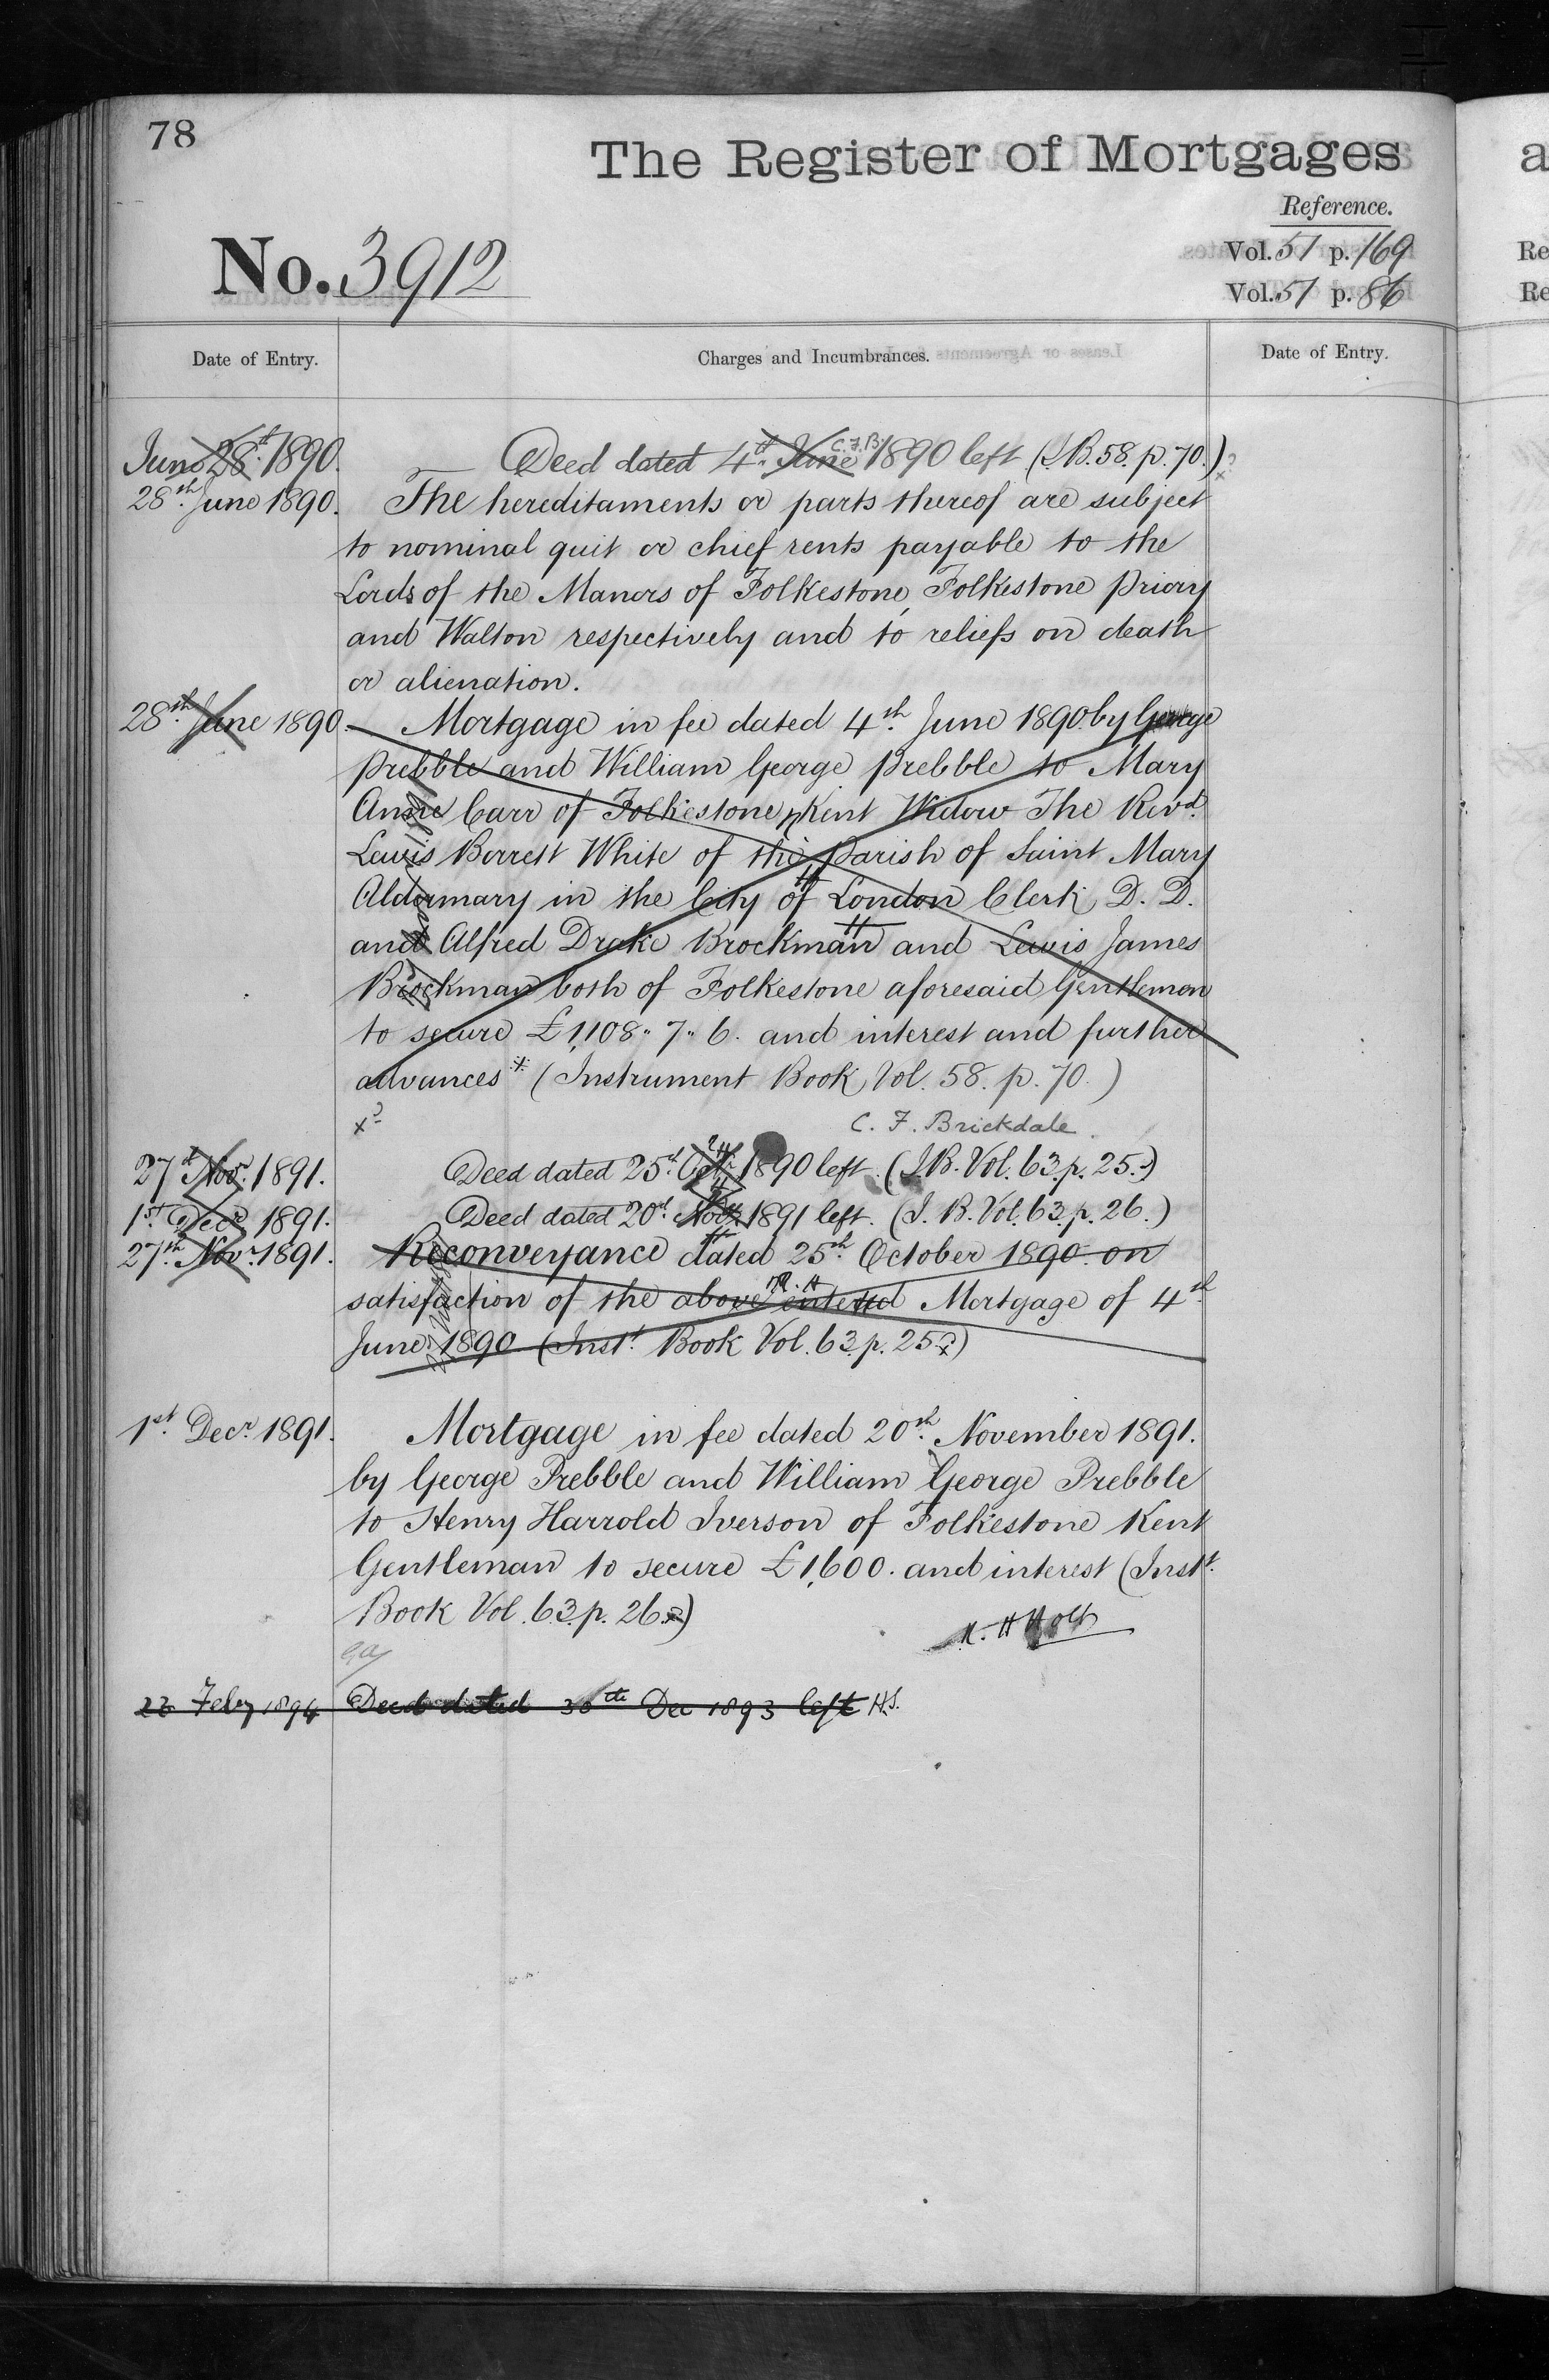 78
The Register of Mortgages
Reference.
No. 3912
Vol. 51 p. 169
Vol. 51 p. 86
Date of Entry.
Charges and Incumbrances.
Date of Entry.
June 28th 1890.
Deed dated 4th June C.F.B. 1890 left (I.B. 58. p. 70.)
28th June 1890.
The hereditaments or parts thereof are subject
to nominal quit or chief rents payable to the
Lords of the Manors of Folkestone, Folkestone Priory
and Walton respectively and to reliefs on death
or alienation.
28th June 1890.
Mortgage in fee dated 4th June 1890 by George
Prebble and William George Prebble to Mary
Anne Carr of Folkestone Kent Widow The Revd.
Lewis Borrett White of the Parish of Saint Mary
Aldermary in the City of London Clerk D. D.
and Alfred Drake Brockman and Lewis James
Brockman both of Folkestone aforesaid Gentlemen
to secure £1,108 " 7 " 6. and interest and further
advances * (Instrument Book Vol. 58. p. 70.)
C. F. Brickdale
27th Novr. 1891.
Deed dated 25th Octr. 1890 left. (I.B. Vol. 63. p. 25.)
1st Decr. 1891.
Deed dated 20th Novr. 1891 left. (I. B. Vol. 63. p. 26.)
27th Novr. 1891.
Reconveyance dated 25th October 1890 on
satisfaction of the above entered Mortgage of 4th
June 1890 (Inst. Book Vol. 63. p. 25.)
1st Decr. 1891.
Mortgage in fee dated 20th November 1891.
by George Prebble and William George Prebble
to Henry Harrold Iverson of Folkestone Kent
Gentleman to secure £1,600. and interest (Inst.
Book Vol. 63. p. 26.)
Holt
Feby 1894
Deed dated 30th Dec 1893 left H.S.
a
Re
Re